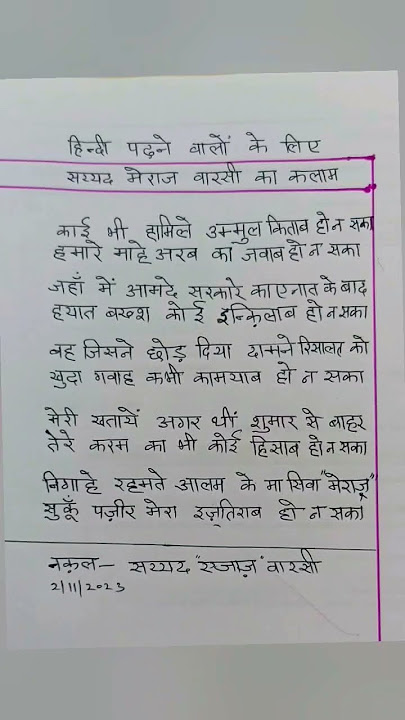 हिन्दी पढ़ने वालों के लिए
सय्यद मेराज वारसी का कलाम
काई भी हामिले उम्मुल किताब हो न सका
हमारे माहे अरब का जवाब हो न सका
जहाँ में आमदे सरकारे काएनात के बाद
हयात बख्श कोई इन्क़िलाब हो न सका
वह जिसने छोड़ दिया दामने रिसालत को
खुदा गवाह कभी कामयाब हो न सका
मेरी खतायें अगर थीं शुमार से बाहर
तेरे करम का भी कोई हिसाब हो न सका
निगाहे रहमते आलम के मा सिवा "मेराज़"
सुकूँ पज़ीर मेरा इज़्तिराब हो न सका
नक़ल- सय्यद "एजाज़" वारसी
2/11/2023